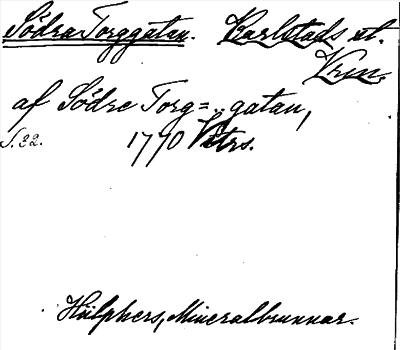 Södra Torggatan. Carlstads st.
Vrm.
af Södre Torg= gatan,
S. 32. 1770 Vitrs.
Hülphers, Mineralbrunnar.